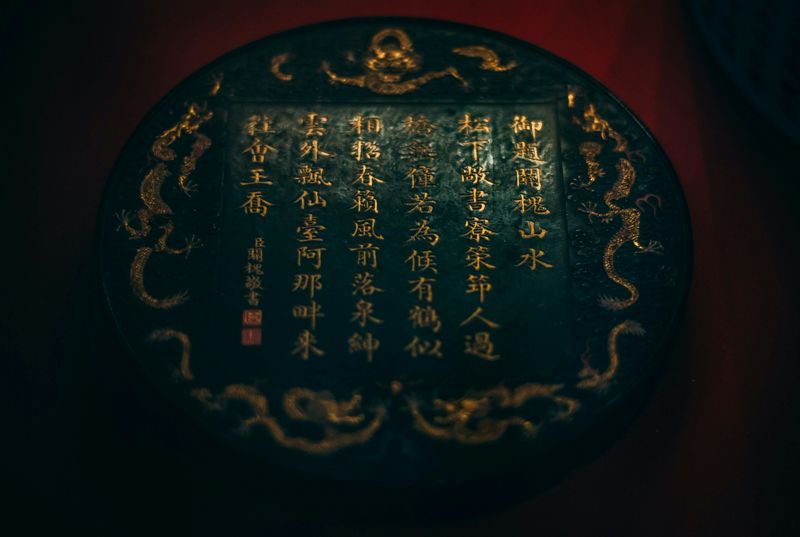 御題關槐山水
松下敞書寮策節人過
橋無僮若為候有鶴似
相招春籟風前落泉紳
雲外飄仙臺阿那畔來
往會王喬
臣關槐敬書